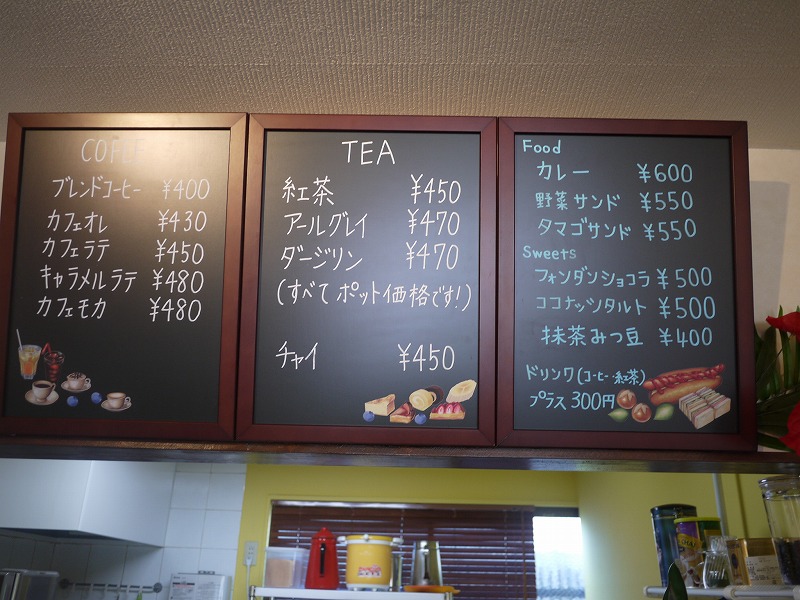 COFEE
ブレンドコーヒー ¥400
カフェオレ ¥430
カフェラテ ¥450
キャラメルラテ ¥480
カフェモカ ¥480
TEA
紅茶 ¥450
アールグレイ ¥470
ダージリン ¥470
(すべてポット価格です!)
チャイ ¥450
Food
カレー ¥600
野菜サンド ¥550
タマゴサンド ¥550
Sweets
フォンダンショコラ ¥500
ココナッツタルト ¥500
抹茶みつ豆 ¥400
ドリンク(コーヒー・紅茶)
プラス300円